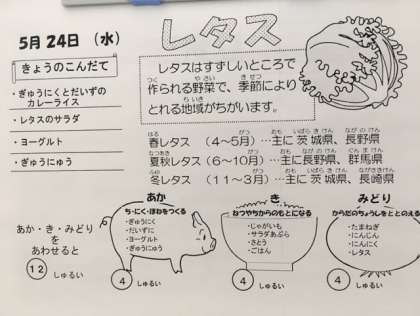 レタス
5月24日（水）
きょうのこんだて
・ぎゅうにくとだいずの
カレーライス
・レタスのサラダ
・ヨーグルト
・ぎゅうにゅう
レタスはすずしいところで
作られる野菜で、季節により
とれる地域がちがいます。
春レタス （4～5月）…主に茨城県、長野県
夏秋レタス（6～10月）…主に長野県、群馬県
冬レタス （11～3月）…主に茨城県、長崎県
あか・き・みどり
を
あわせると
12 しゅるい
あか
ち・にく・ほねをつくる
・ぎゅうにく
・だいずに
・ヨーグルト
・ぎゅうにゅう
4 しゅるい
き
ねつやちからのもとになる
・じゃがいも
・サラダあぶら
・さとう
・ごはん
4 しゅるい
みどり
からだのちょうしをととのえる
・たまねぎ
・にんじん
・にんにく
・レタス
4 しゅるい